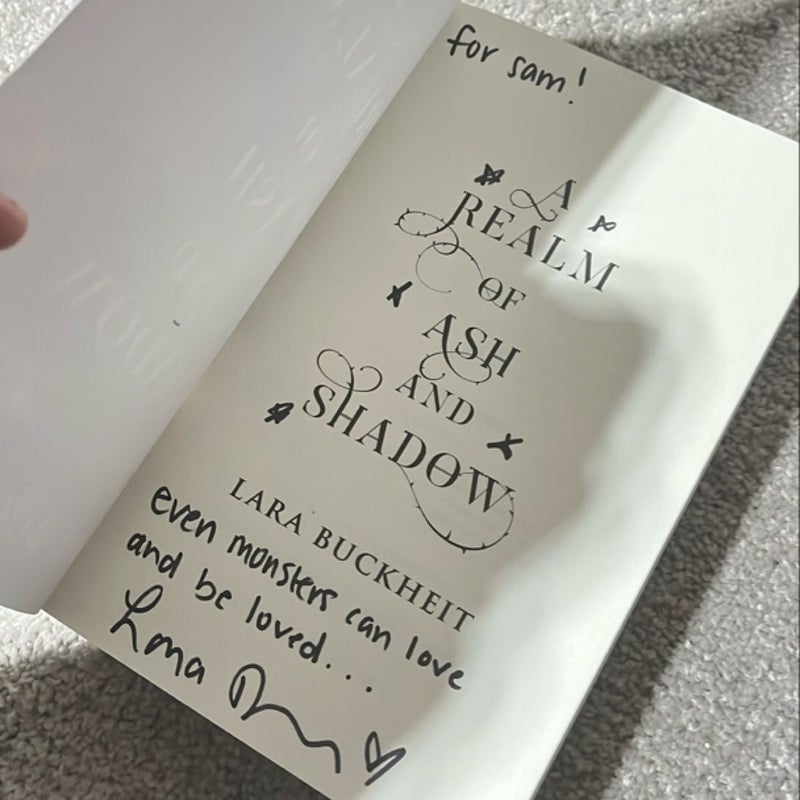 for sam!
A
REALM
OF
ASH
AND
SHADOW
LARA BUCKHEIT
even monsters can love
and be loved...
Lara